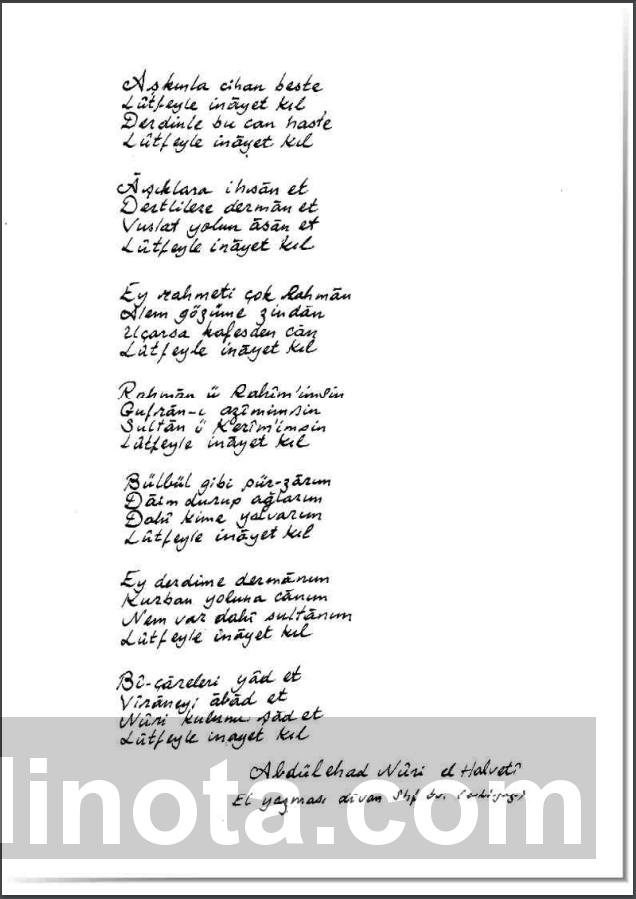 Aşkınla cihan beste
Lûtfeyle inâyet kıl
Derdinle bu can haste
Lûtfeyle inâyet kıl
Âşıklara ihsân et
Dertlilere dermân et
Vuslat yolun âsân et
Lûtfeyle inâyet kıl
Ey rahmeti çok Rahmân
Âlem gözüme zindân
Uçarsa kafesden cân
Lûtfeyle inâyet kıl
Rahmân ü Rahîm'imsin
Gufrân-ı azîmimsin
Sultân ü Kerîm'imsin
Lûtfeyle inâyet kıl
Bülbül gibi pür-zârım
Dâim durup ağlarım
Dahî kime yalvarım
Lûtfeyle inâyet kıl
Ey derdime dermânım
Kurban yoluna cânım
Nem var dahî sultânım
Lûtfeyle inâyet kıl
Bî-çâreleri yâd et
Vîrâneyi âbâd et
Nûri kulunu şâd et
Lûtfeyle inayet kıl
Abdülehad Nûri el Halvetî
El yazması dîvan Shf
linota.com